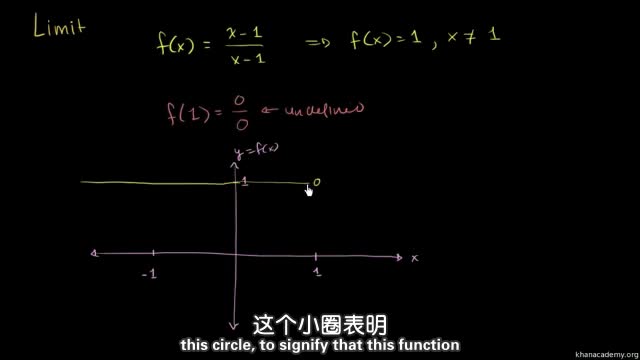 Limit
f(x) = x-1 / x-1 ⇒ f(x) = 1 , x ≠ 1
f(1) = 0 / 0 ← undefined
y = f(x)
1
-1 1 x
这个小圈表明
this circle, to signify that this function
khanacademy.org